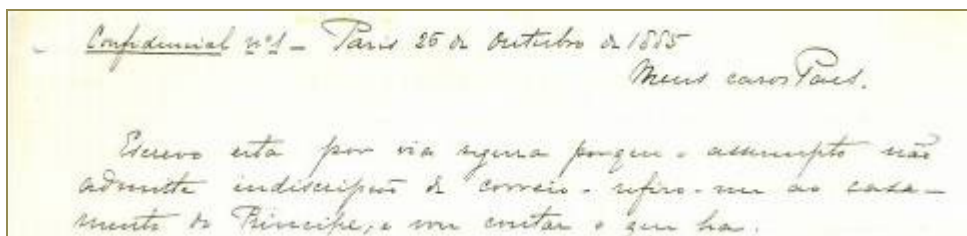 Confidencial nº1 - Paris 25 de Outubro de 1885
Meus caros Paes.
Escrevo esta por via segura porque o assumpto não
admitte indiscripções de correio - refiro-me ao casa-
mento do Principe, e vou contar o que ha.